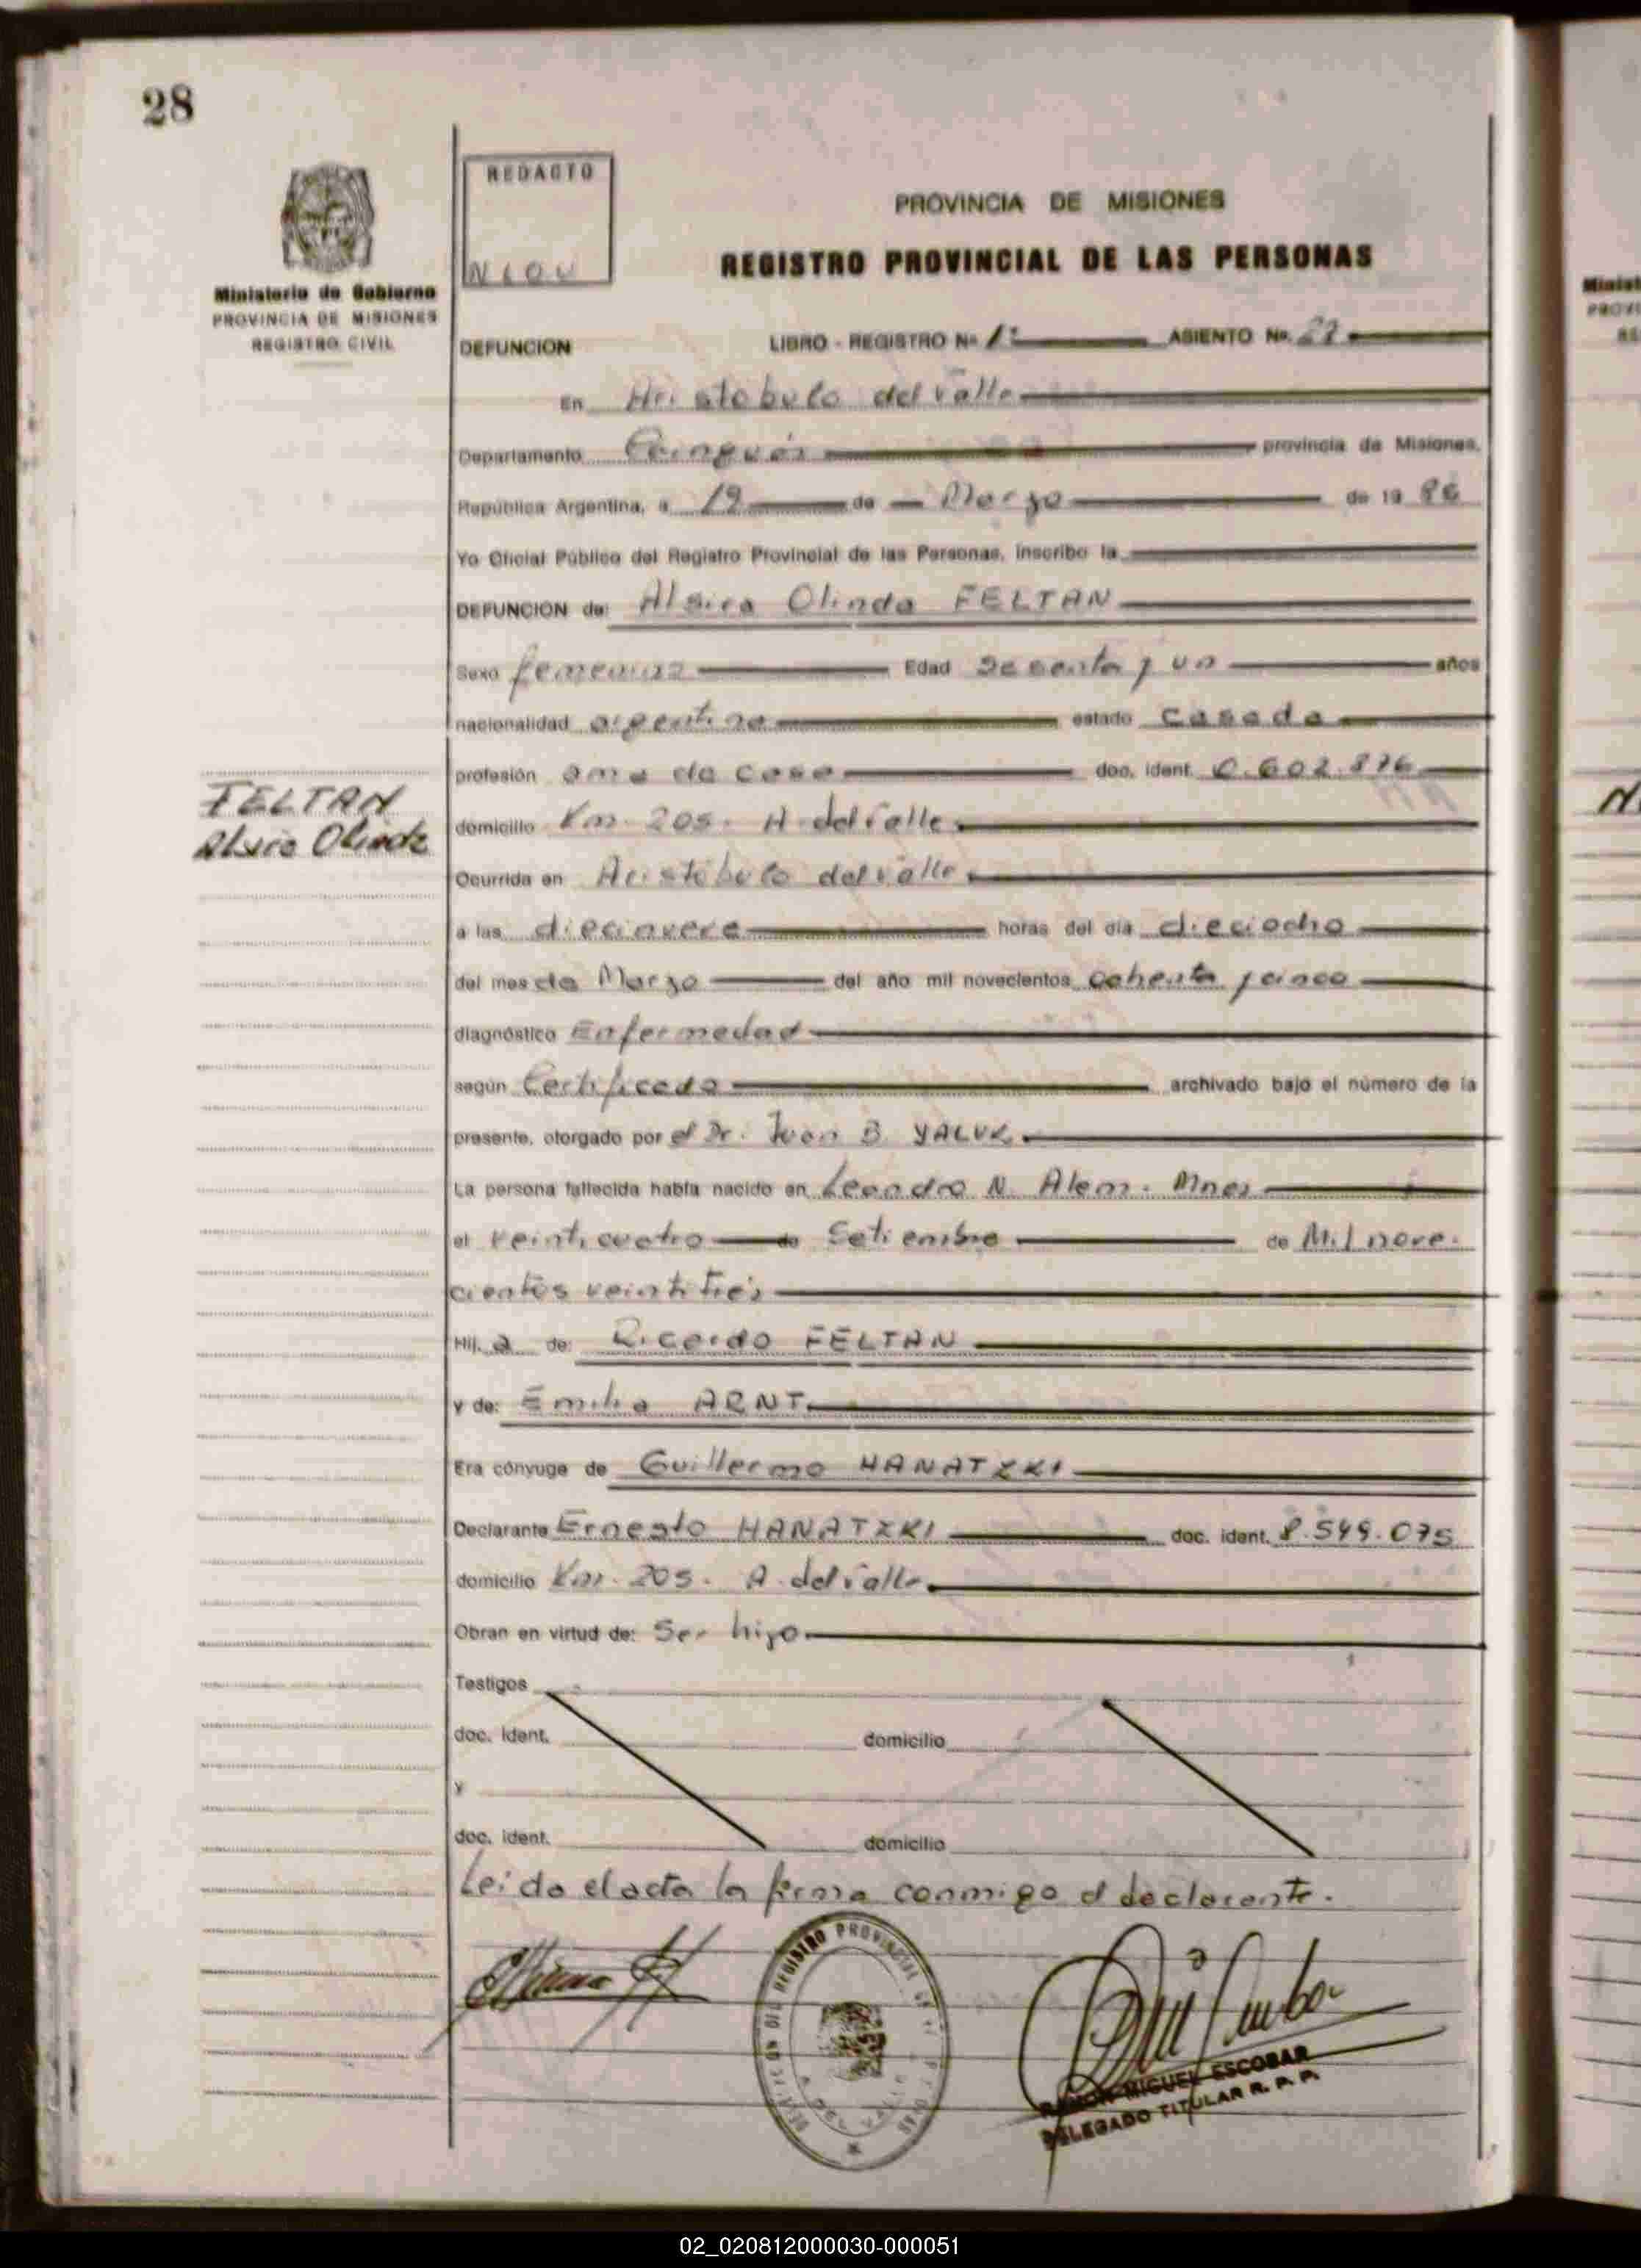 28
REDACTO
PROVINCIA DE MISIONES
REGISTRO PROVINCIAL DE LAS PERSONAS
Ministerio de Gobierno
PROVINCIA DE MISIONES
REGISTRO CIVIL
DEFUNCION LIBRO - REGISTRO Nº ASIENTO Nº. 27
En Aristobulo del Valle
Departamento Cainguás provincia de Misiones,
República Argentina, a 19 de Marzo de 19 86
Yo Oficial Público del Registro Provincial de las Personas, inscribo la
DEFUNCION de: Alsira Olinda FELTAN
Sexo femenino Edad Sesenta y un años
nacionalidad argentina estado Casada
profesión ama de casa doc. ident. 6.602.876
FELTAN
Alsira Olinda
domicilio Km. 205. A. del Valle
Ocurrida en Aristóbulo del Valle
a las diecinueve horas del día dieciocho
del mes de Marzo del año mil novecientos ochenta y cinco
diagnóstico Enfermedad
según Certificado archivado bajo el número de la
presente, otorgado por el Dr. Juan B. YALUK
La persona fallecida había nacido en Leandro N. Alem. Mnes
el veinticuatro de Setiembre de Mil nove.
cientos veintitrés
Hij. a de: Ricardo FELTAN
y de: Emilia ARNT
Era cónyuge de Guillermo HANATZKI
Declarante Ernesto HANATZKI doc. ident. 8.549.075
domicilio Km. 205. A. del Valle
Obran en virtud de: Ser hijo
Testigos
doc. ident. domicilio
y
doc. ident. domicilio
Leida el acta la firma conmigo el declarante.
REGISTRO PROVINCIAL
RAMON MIGUEL ESCOBAR
DELEGADO TITULAR R. P. P.
02_020812000030-000051